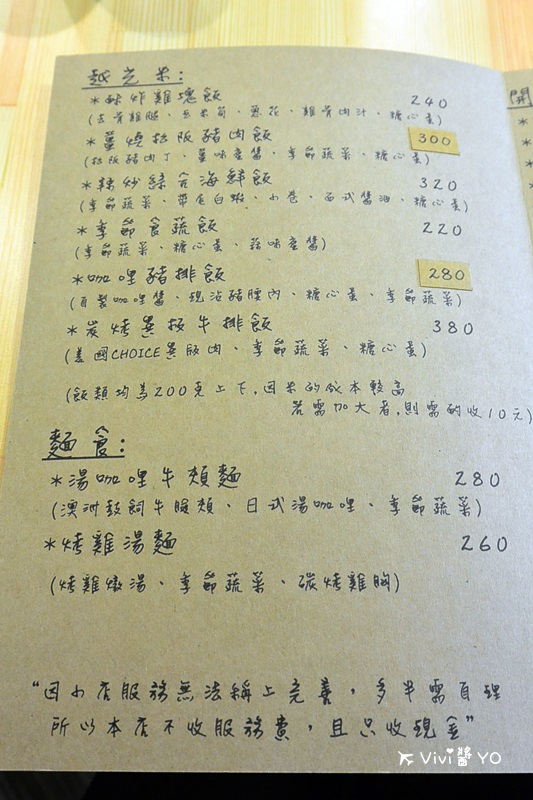 越光米:
*酥炸雞塊飯 240
(去骨雞腿、玉米筍、蔥花、雞骨肉汁、糖心蛋)
*薑燒松阪豬肉飯 300
(松阪豬肉丁、薑味壺醬、季節蔬菜、糖心蛋)
*辣炒綜合海鮮飯 320
(季節蔬菜、帶尾白蝦、小卷、西式醬油、糖心蛋)
*季節食蔬飯 220
(季節蔬菜、糖心蛋、菇味壺醬)
*咖哩豬排飯 280
(自製咖哩醬、現流豬腰內、糖心蛋、季節蔬菜)
*炭烤翼板牛排飯 380
(美國CHOICE翼板肉、季節蔬菜、糖心蛋)
(飯類均為200克上下,因米的成本較高
若需加大者,則需酌收10元)
麵食:
*湯咖哩牛頰麵 280
(澳洲穀飼牛臉頰、日式湯咖哩、季節蔬菜)
*烤雞湯麵 260
(烤雞燉湯、季節蔬菜、碳烤雞胸)
"因小店服務無法稱上完善,多半需自理
所以本店不收服務費,且只收現金"
開
*
*
*
Vivi醬YO